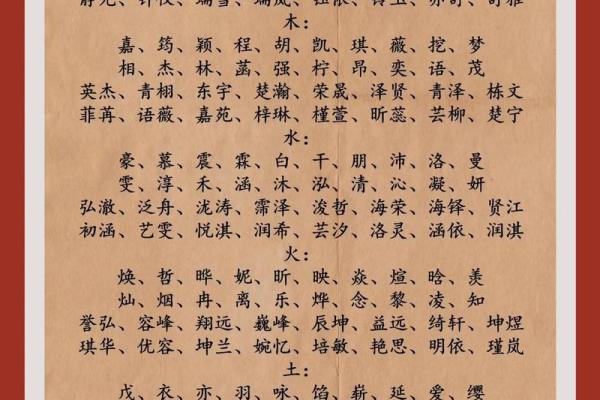 木：
嘉、筠、颖、程、胡、凯、琪、薇、挖、梦
相、杰、林、菡、强、柠、昂、奕、语、茂
英杰、青栩、东宇、楚瀚、荣晟、泽贤、青泽、栋文
菲苒、语薇、嘉苑、梓琳、槿萱、昕蕊、芸柳、楚宁
水：
豪、慕、震、霖、白、干、朋、沛、洛、曼
雯、淳、禾、涵、沐、泓、清、沁、凝、妍
弘澈、泛舟、泷涛、霈泽、浚哲、海荣、海铎、贤江
初涵、艺雯、悦淇、润希、芸汐、洛灵、涵依、润淇
火：
焕、哲、晔、妮、昕、映、焱、煊、晗、羡
灿、烟、冉、离、乐、烨、念、黎、凌、知
誉弘、容峰、翔远、巍峰、辰坤、益远、绮轩、坤煜
琪华、优容、坤兰、婉忆、培敏、艳思、明依、瑾岚
土：
戊、衣、亦、羽、咏、馅、崭、延、爱、缨